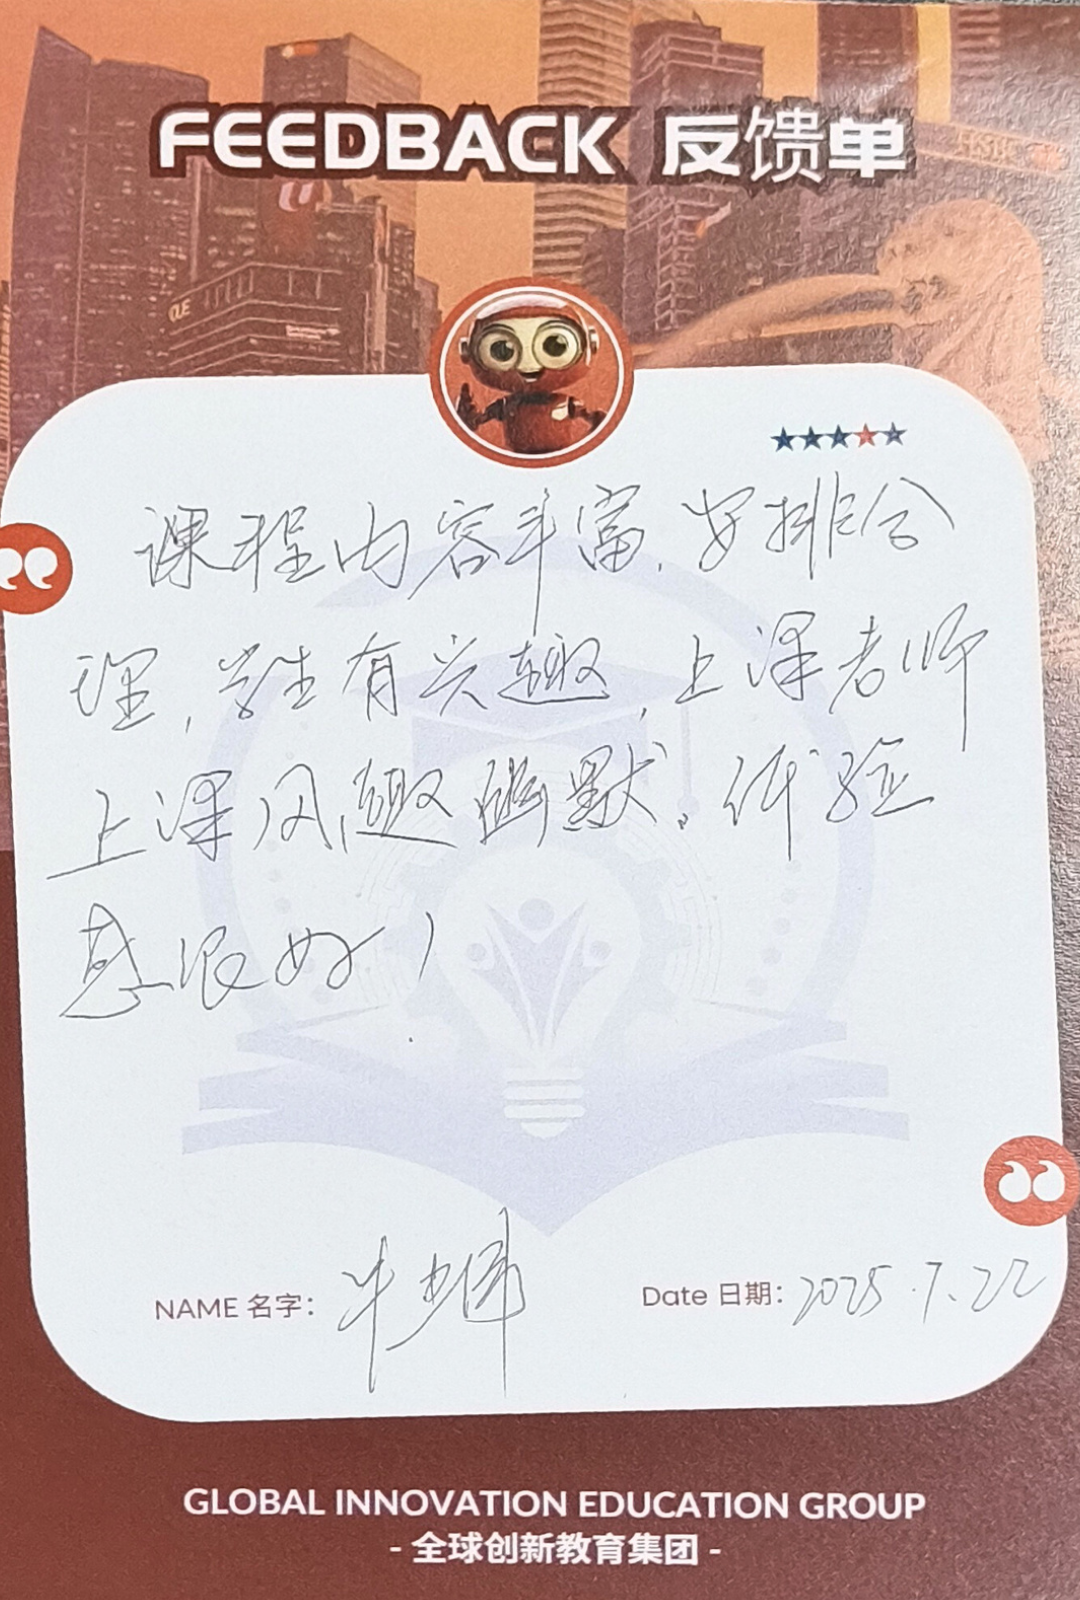 FEEDBACK 反馈单
课程内容丰富,安排合
理,学生有兴趣,上课老师
上课风趣幽默。体验
感很好!
NAME 名字: 牛
Date 日期: 2025.7.22
GLOBAL INNOVATION EDUCATION GROUP
- 全球创新教育集团 -